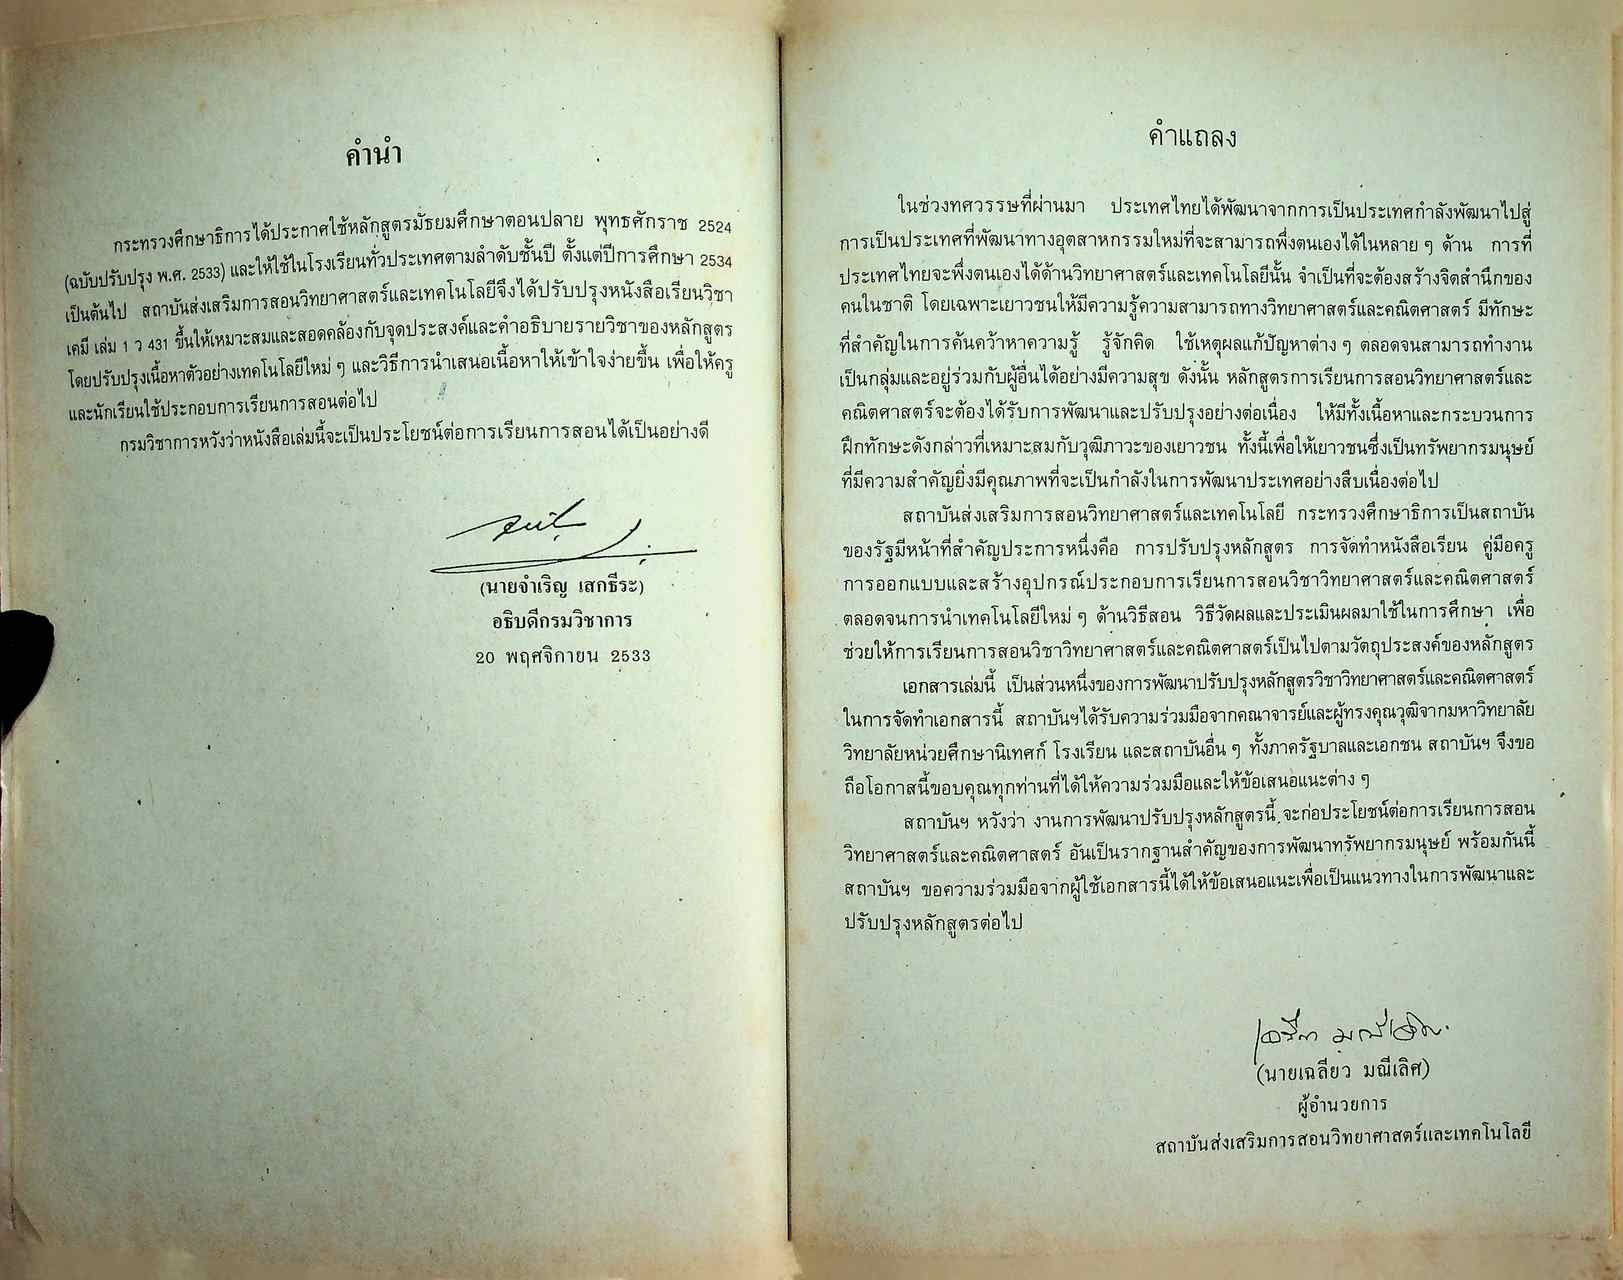 คำนำ
กระทรวงศึกษาธิการได้ประกาศใช้หลักสูตรมัธยมศึกษาตอนปลาย พุทธศักราช 2524
(ฉบับปรับปรุง พ.ศ. 2533) และให้ใช้ในโรงเรียนทั่วประเทศตามลำดับชั้นปี ตั้งแต่ปีการศึกษา 2534
เป็นต้นไป สถาบันส่งเสริมการสอนวิทยาศาสตร์และเทคโนโลยีจึงได้ปรับปรุงหนังสือเรียนวิชา
เคมี เล่ม 1 ว 431 ขึ้นให้เหมาะสมและสอดคล้องกับจุดประสงค์และคำอธิบายรายวิชาของหลักสูตร
โดยปรับปรุงเนื้อหาตัวอย่างเทคโนโลยีใหม่ ๆ และวิธีการนำเสนอเนื้อหาให้เข้าใจง่ายขึ้น เพื่อให้ครู
และนักเรียนใช้ประกอบการเรียนการสอนต่อไป
กรมวิชาการหวังว่าหนังสือเล่มนี้จะเป็นประโยชน์ต่อการเรียนการสอนได้เป็นอย่างดี
(นายจำเริญ เสกธีระ)
อธิบดีกรมวิชาการ
20 พฤศจิกายน 2533
คำแถลง
ในช่วงทศวรรษที่ผ่านมา ประเทศไทยได้พัฒนาจากการเป็นประเทศกำลังพัฒนาไปสู่
การเป็นประเทศที่พัฒนาทางอุตสาหกรรมใหม่ที่จะสามารถพึ่งตนเองได้ในหลาย ๆ ด้าน การที่
ประเทศไทยจะพึ่งตนเองได้ด้านวิทยาศาสตร์และเทคโนโลยีนั้น จำเป็นที่จะต้องสร้างจิตสำนึกของ
คนในชาติ โดยเฉพาะเยาวชนให้มีความรู้ความสามารถทางวิทยาศาสตร์และคณิตศาสตร์ มีทักษะ
ที่สำคัญในการค้นคว้าหาความรู้ รู้จักคิด ใช้เหตุผลแก้ปัญหาต่าง ๆ ตลอดจนสามารถทำงาน
เป็นกลุ่มและอยู่ร่วมกับผู้อื่นได้อย่างมีความสุข ดังนั้น หลักสูตรการเรียนการสอนวิทยาศาสตร์และ
คณิตศาสตร์จะต้องได้รับการพัฒนาและปรับปรุงอย่างต่อเนื่อง ให้มีทั้งเนื้อหาและกระบวนการ
ฝึกทักษะดังกล่าวที่เหมาะสมกับวุฒิภาวะของเยาวชน ทั้งนี้เพื่อให้เยาวชนซึ่งเป็นทรัพยากรมนุษย์
ที่มีความสำคัญยิ่งมีคุณภาพที่จะเป็นกำลังในการพัฒนาประเทศอย่างสืบเนื่องต่อไป
สถาบันส่งเสริมการสอนวิทยาศาสตร์และเทคโนโลยี กระทรวงศึกษาธิการเป็นสถาบัน
ของรัฐมีหน้าที่สำคัญประการหนึ่งคือ การปรับปรุงหลักสูตร การจัดทำหนังสือเรียน คู่มือครู
การออกแบบและสร้างอุปกรณ์ประกอบการเรียนการสอนวิชาวิทยาศาสตร์และคณิตศาสตร์
ตลอดจนการนำเทคโนโลยีใหม่ ๆ ด้านวิธีสอน วิธีวัดผลและประเมินผลมาใช้ในการศึกษา เพื่อ
ช่วยให้การเรียนการสอนวิชาวิทยาศาสตร์และคณิตศาสตร์เป็นไปตามวัตถุประสงค์ของหลักสูตร
เอกสารเล่มนี้ เป็นส่วนหนึ่งของการพัฒนาปรับปรุงหลักสูตรวิชาวิทยาศาสตร์และคณิตศาสตร์
ในการจัดทำเอกสารนี้ สถาบันฯได้รับความร่วมมือจากคณาจารย์และผู้ทรงคุณวุฒิจากมหาวิทยาลัย
วิทยาลัยหน่วยศึกษานิเทศก์ โรงเรียน และสถาบันอื่น ๆ ทั้งภาครัฐบาลและเอกชน สถาบันฯ จึงขอ
ถือโอกาสนี้ขอบคุณทุกท่านที่ได้ให้ความร่วมมือและให้ข้อเสนอแนะต่าง ๆ
สถาบันฯ หวังว่า งานการพัฒนาปรับปรุงหลักสูตรนี้ จะก่อประโยชน์ต่อการเรียนการสอน
วิทยาศาสตร์และคณิตศาสตร์ อันเป็นรากฐานสำคัญของการพัฒนาทรัพยากรมนุษย์ พร้อมกันนี้
สถาบันฯ ขอความร่วมมือจากผู้ใช้เอกสารนี้ได้ให้ข้อเสนอแนะเพื่อเป็นแนวทางในการพัฒนาและ
ปรับปรุงหลักสูตรต่อไป
(นายเฉลียว มณีเลิศ)
ผู้อำนวยการ
สถาบันส่งเสริมการสอนวิทยาศาสตร์และเทคโนโลยี